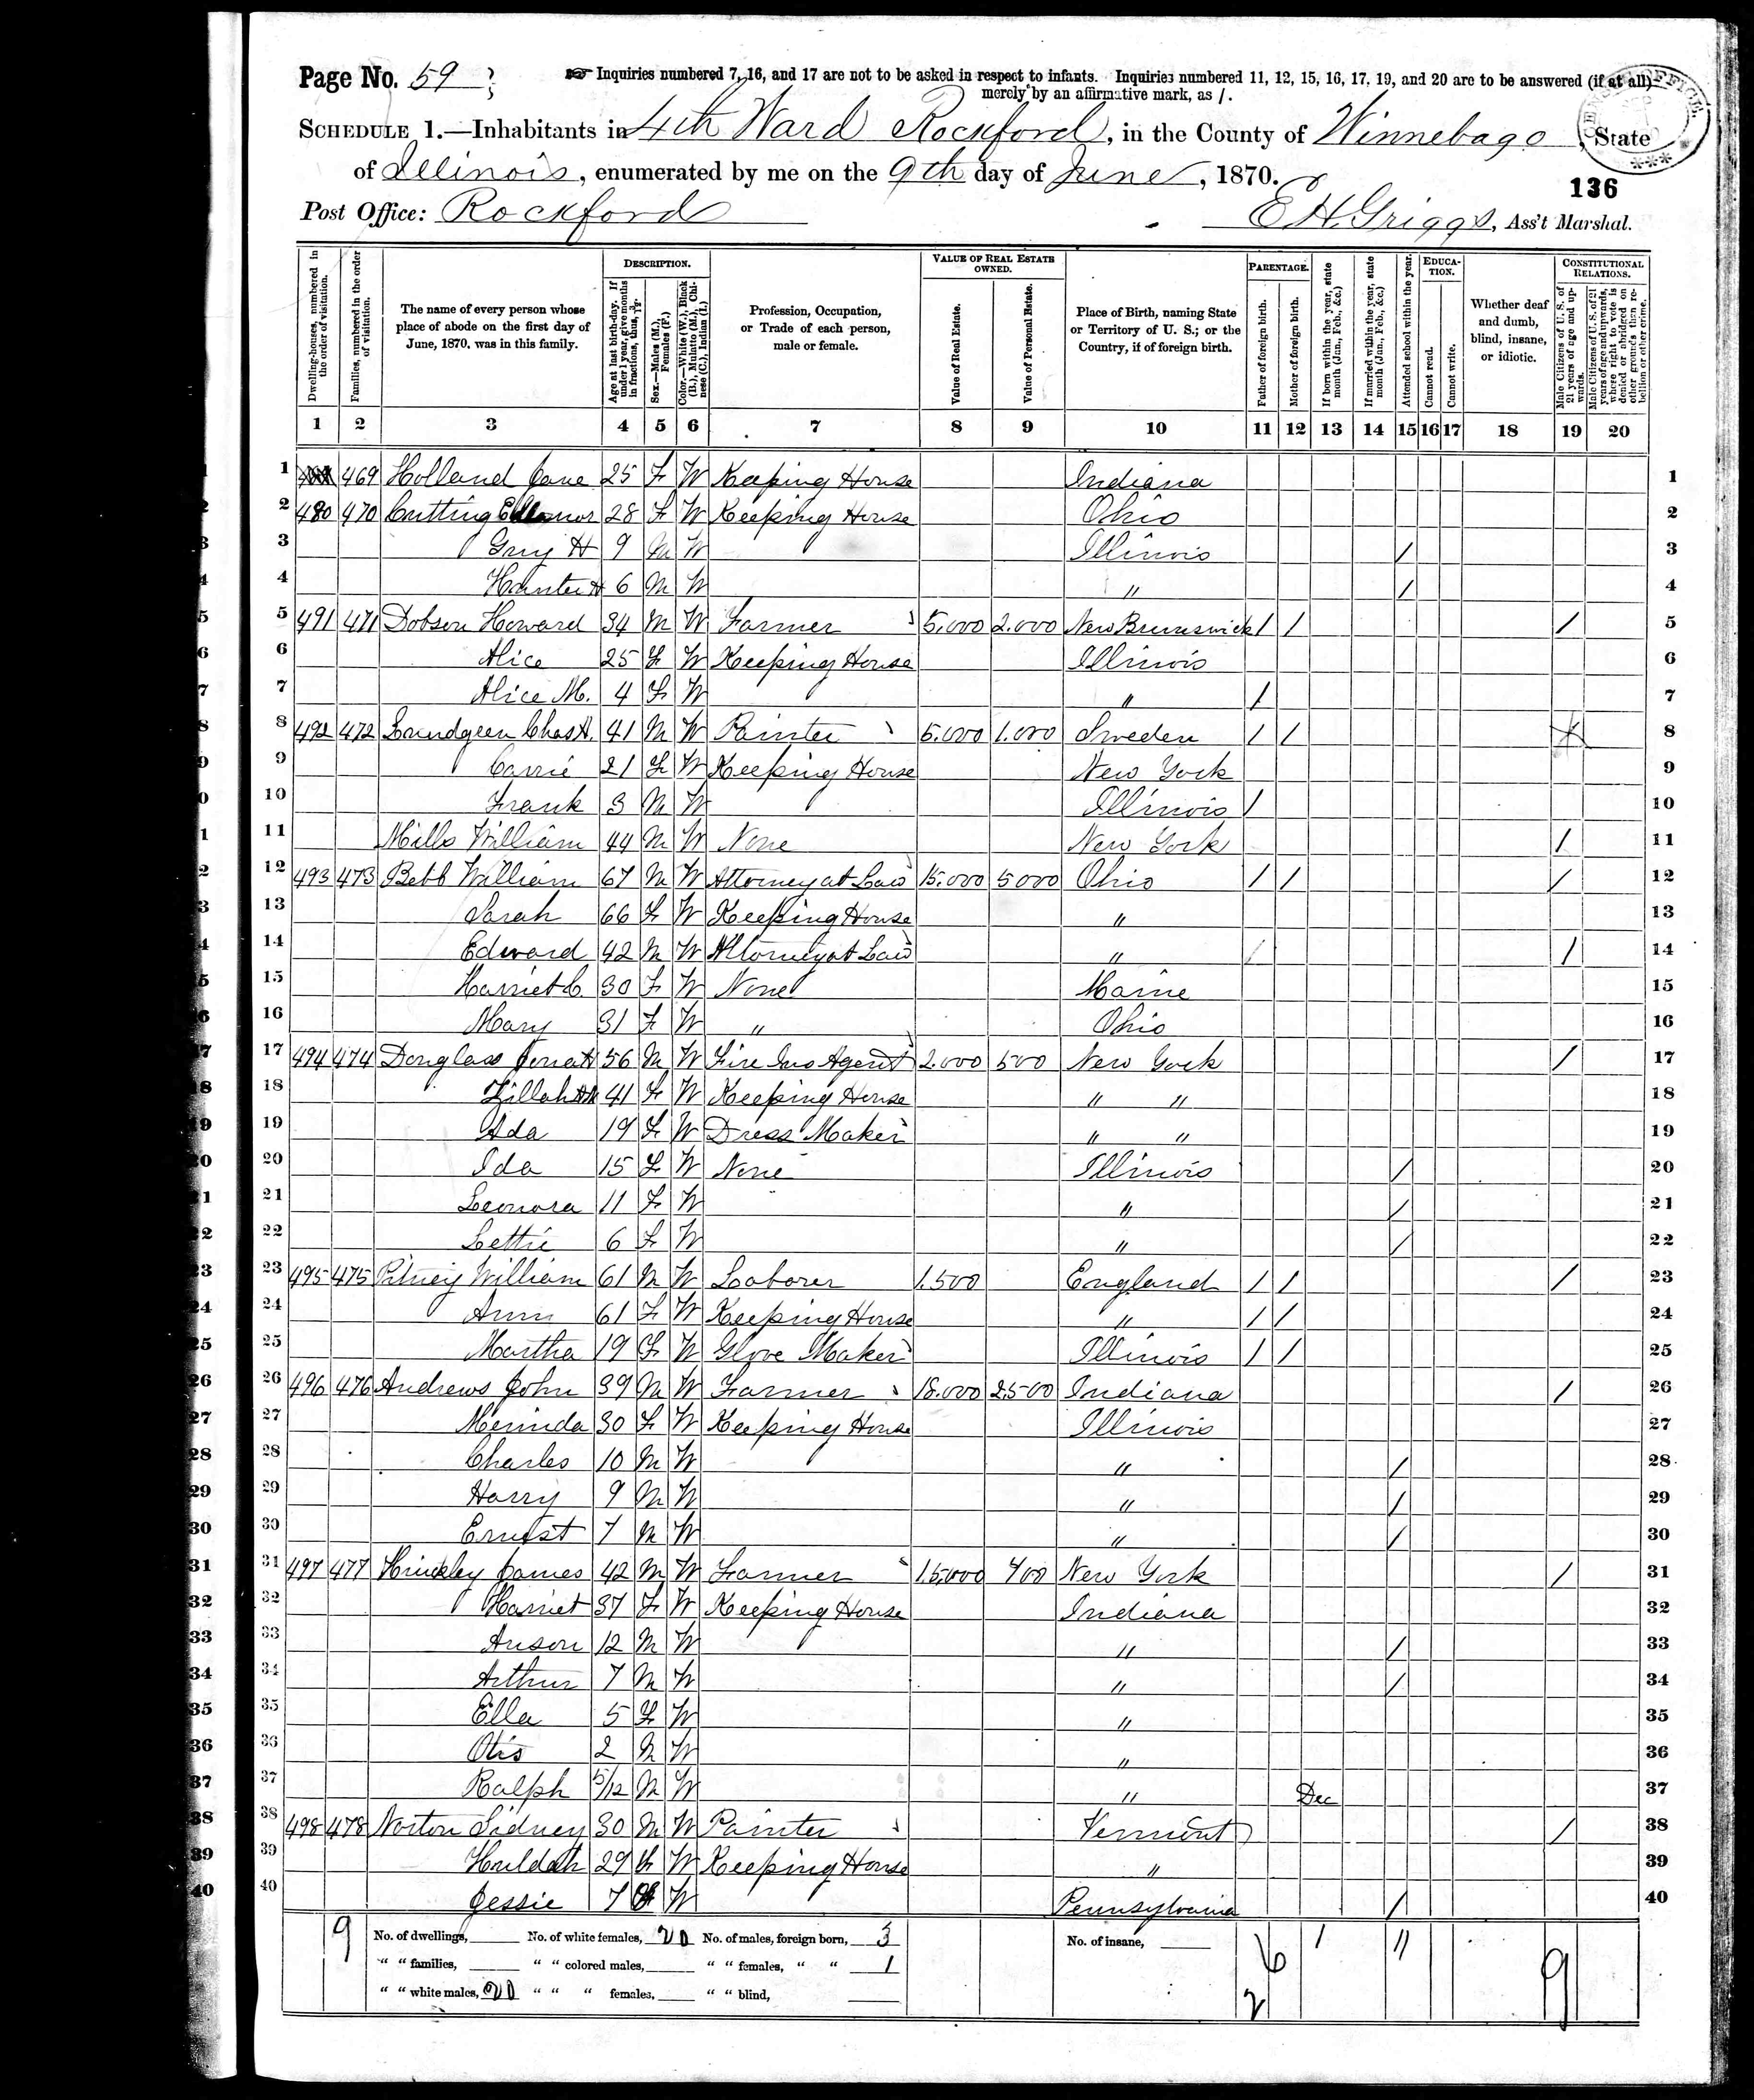 Page No. 59
Inquiries numbered 7, 16, and 17 are not to be asked in respect to infants. Inquiries numbered 11, 12, 15, 16, 17, 19, and 20 are to be answered (if at all)
merely by an affirmative mark, as /.
SCHEDULE 1.—Inhabitants in 4th Ward Rockford, in the County of Winnebago, State
of Illinois, enumerated by me on the 9th day of June, 1870.
136
Post Office: Rockford E H. Griggs, Ass't Marshal.
Dwelling-houses, numbered in the order of visitation.
Families, numbered in the order of visitation.
The name of every person whose place of abode on the first day of June, 1870, was in this family.
DESCRIPTION.
Age at last birth-day. If under 1 year, give months in fractions, thus, 3/12.
Sex.—Males (M.), Females (F.)
Color.—White (W.), Black (B.), Mulatto (M.), Chinese (C.), Indian (I.)
Profession, Occupation, or Trade of each person, male or female.
VALUE OF REAL ESTATE OWNED.
Value of Real Estate.
Value of Personal Estate.
Place of Birth, naming State or Territory of U. S.; or the Country, if of foreign birth.
PARENTAGE.
Father of foreign birth.
Mother of foreign birth.
If born within the year, state month (Jan., Feb., &c.)
If married within the year, state month (Jan., Feb., &c.)
Attended school within the year.
EDUCATION.
Cannot read.
Cannot write.
Whether deaf and dumb, blind, insane, or idiotic.
CONSTITUTIONAL RELATIONS.
Male Citizens of U. S. of 21 years of age and upwards.
Male Citizens of U. S. of 21 years of age and upwards, where right to vote is denied or abridged on other grounds than rebellion or other crime.
1 2 3 4 5 6 7 8 9 10 11 12 13 14 15 16 17 18 19 20
1 469 Holland Jane 25 F W Keeping House Indiana 1
2 480 470 Cutting Ellanor 28 F W Keeping House Ohio 2
3 Guy H 9 M W Illinois / 3
4 H 6 M W " / 4
5 491 471 Dobson Howard 34 M W Farmer 5.000 2.000 New Brunswick / / / 5
6 Alice 25 F W Keeping House Illinois 6
7 Alice M. 4 F W " / 7
8 492 472 Lundgeen Chas A. 41 M W Painter 5.000 1.000 Sweden / / / 8
9 Carrie 21 F W Keeping House New York 9
10 Frank 3 M W Illinois / 10
11 Mills William 44 M W None New York / 11
12 493 473 Bebb William 67 M W Attorney at Law 15.000 5000 Ohio / / / 12
13 Sarah 66 F W Keeping House " 13
14 Edward 42 M W Attorney at Law " / / 14
15 Harriet C. 30 F W None Maine 15
16 Mary 31 F W " Ohio 16
17 494 474 Douglass 56 M W Fire Ins Agent 2.000 500 New York / 17
18 Zillah 41 F W Keeping House " " 18
19 Ada 19 F W Dress Maker " " 19
20 Ida 15 F W None Illinois / 20
21 Leonora 11 F W " / 21
22 Lettie 6 F W " / 22
23 495 475 Pitney William 61 M W Laborer 1.500 England / / / 23
24 Ann 61 F W Keeping House " / / 24
25 Martha 19 F W Glove Maker Illinois / / 25
26 496 476 Andrews John 39 M W Farmer 18.000 2500 Indiana / 26
27 Merinda 30 F W Keeping House Illinois 27
28 Charles 10 M W " / 28
29 Harry 9 M W " / 29
30 Ernest 7 M W " / 30
31 497 477 Hinckley James 42 M W Farmer 15.000 400 New York / 31
32 Harriet 37 F W Keeping House Indiana 32
33 Anson 12 M W " / 33
34 Arthur 7 M W " / 34
35 Ella 5 F W " 35
36 Otis 2 M W " 36
37 Ralph 5/12 M W " Dec 37
38 498 478 Norton Sidney 30 M W Painter Vermont / 38
39 Huldah 29 F W Keeping House " 39
40 Jessie 7 F W Pennsylvania / 40
9 No. of dwellings, No. of white females, 20 No. of males, foreign born, 3 No. of insane, 6 1 11 9
" " families, " " colored males, " " females, " " 1
" " white males, 20 " " " females, " " blind, 2